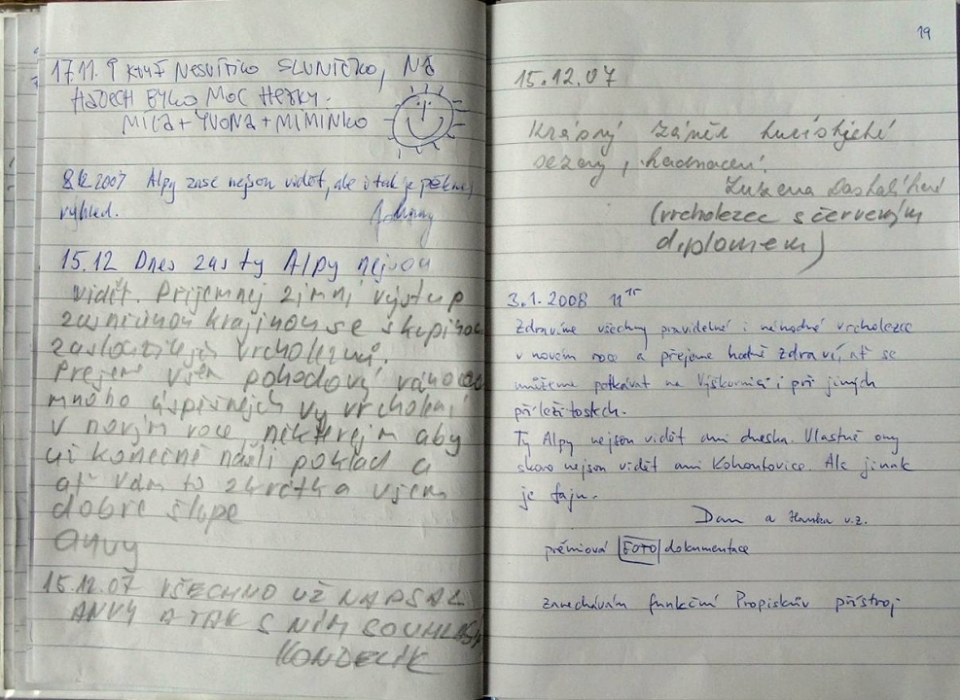 17.11. I KDYŽ NESVÍTILO SLUNÍČKO, NA
HÁDECH BYLO MOC HEZKY.
MÍLA+YVONA+MIMINKO
8.12.2007 Alpy zase nejsou vidět, ale i tak je pěkný
výhled.
15.12 Dnes zas ty Alpy nejsou
vidět. Příjemnej zimní výstup
zasněženou krajinou se skupinou
zasloužilejch vrcholezců.
Přejeme všem pohodový vánoce
mnoho úspěšnejch vy vrcholení
v novym roce, některejm aby
už konečně našli poklad a
ať vám to zkrátka všem
dobře šlape
anvy
15.12.07 VŠECHNO UŽ NAPSAL
ANVY A TAK S NÍM SOUHLASÍM
KONDELIK
19
15.12.07
Krásný závěr
sezony, hadnacení!
Zuzana
(vrcholezec s červeným
diplomem)
3.1.2008 11 15
Zdravíme všechny pravidelné i náhodné vrcholezce
v novém roce a přejeme hodně zdraví, ať se
můžeme potkávat na Výškovnici i při jiných
příležitostech.
Ty Alpy nejsou vidět ani dneska. Vlastně ony
skoro nejsou vidět ani Kohoutovice. Ale jinak
je fajn.
Dan a Hanka v.z.
prémiová FOTO dokumentace
zanechávám funkční Propiskův přístroj